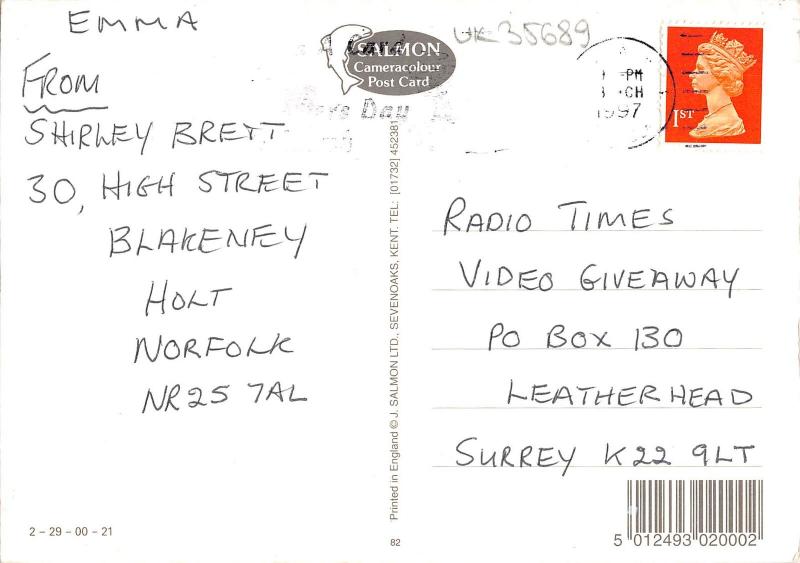 EMMA
FROM
SHIRLEY BRETT
30, HIGH STREET
BLAKENEY
HOLT
NORFOLK
NR25 7AL
2 – 29 – 00 – 21
SALMON
Cameracolour
Post Card
Day
Printed in England © J. SALMON LTD., SEVENOAKS, KENT. TEL: [01732] 452381
82
UK35689
PM
CH
1997
1ST
RADIO TIMES
VIDEO GIVEAWAY
PO BOX 130
LEATHERHEAD
SURREY K22 9LT
5 012493 020002